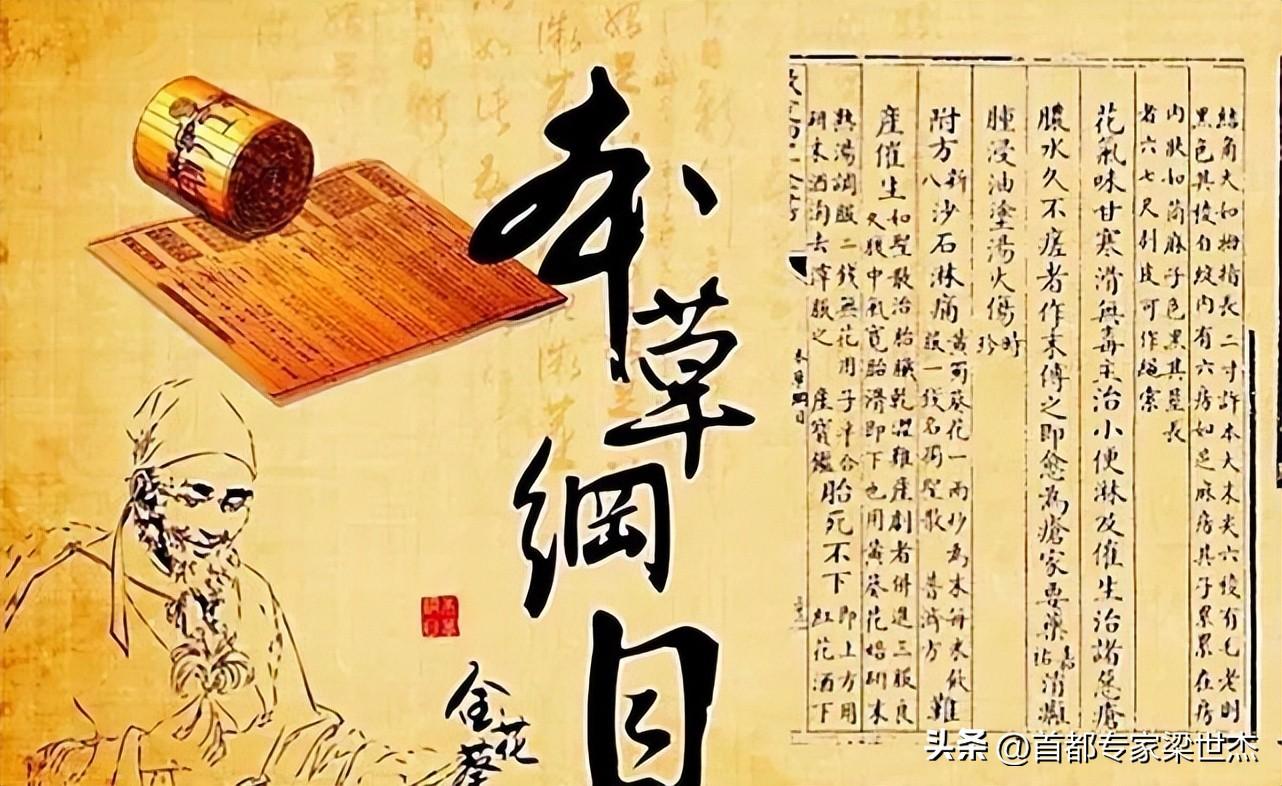 本草綱目
金花葵
結角大如拇指長二寸許本大末尖六稜有毛老則
黑色其稜自綻內有六房如芝麻房其子累累在房
內狀如苘麻子色黑其莖長
者六七尺剝皮可作繩索
花氣味甘寒滑無毒主治小便淋及催生治諸惡瘡
膿水久不瘥者作末傅之即愈為瘡家要藥嘉祐消癰
腫浸油塗湯火傷時珍
附方新八沙石淋痛黃蜀葵花一兩炒為末每米飲服一錢名獨聖散 普濟方難
產催生如聖散治胎臟乾澀難產劇者併進三服良久腹中氣寬胎滑即下也用黃葵花焙研末
熱湯調服二錢無花用子半合研末酒淘去滓服之 產寶鑑胎死不下即上方用紅花酒下
本草綱目
头条 @首都专家梁世杰